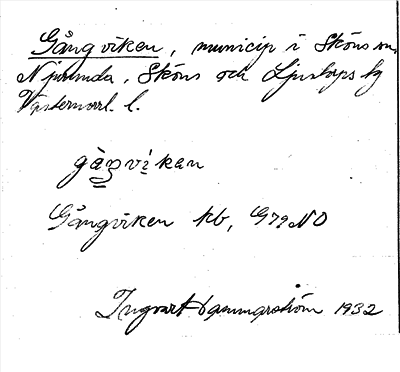 Gångviken, municip i Sköns sn,
Njurunda, Sköns och Ljustorps tg
Västernorrl. l.
gàŋviкan
Gångviken kb, G79NO
Ingvart Hammarström 1932